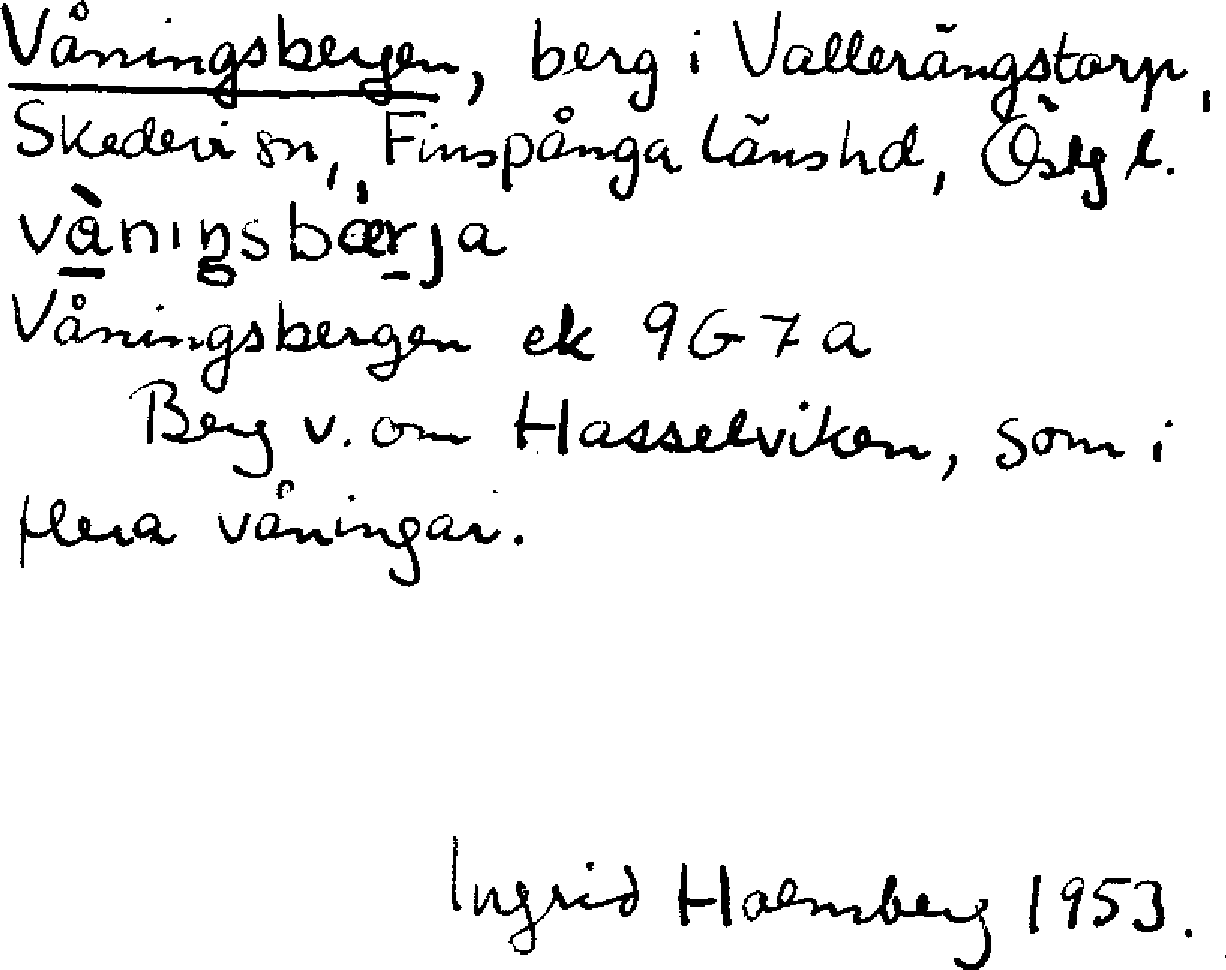 Våningsbergen, berg i Vallerängstorp,
Skedevi sn, Finspånga länshd, Östg l.
vàniŋsbærja
Våningsbergen ek 9G7a
Berg v. om Hasselviken, som i
flera våningar.
Ingrid Holmberg 1953.